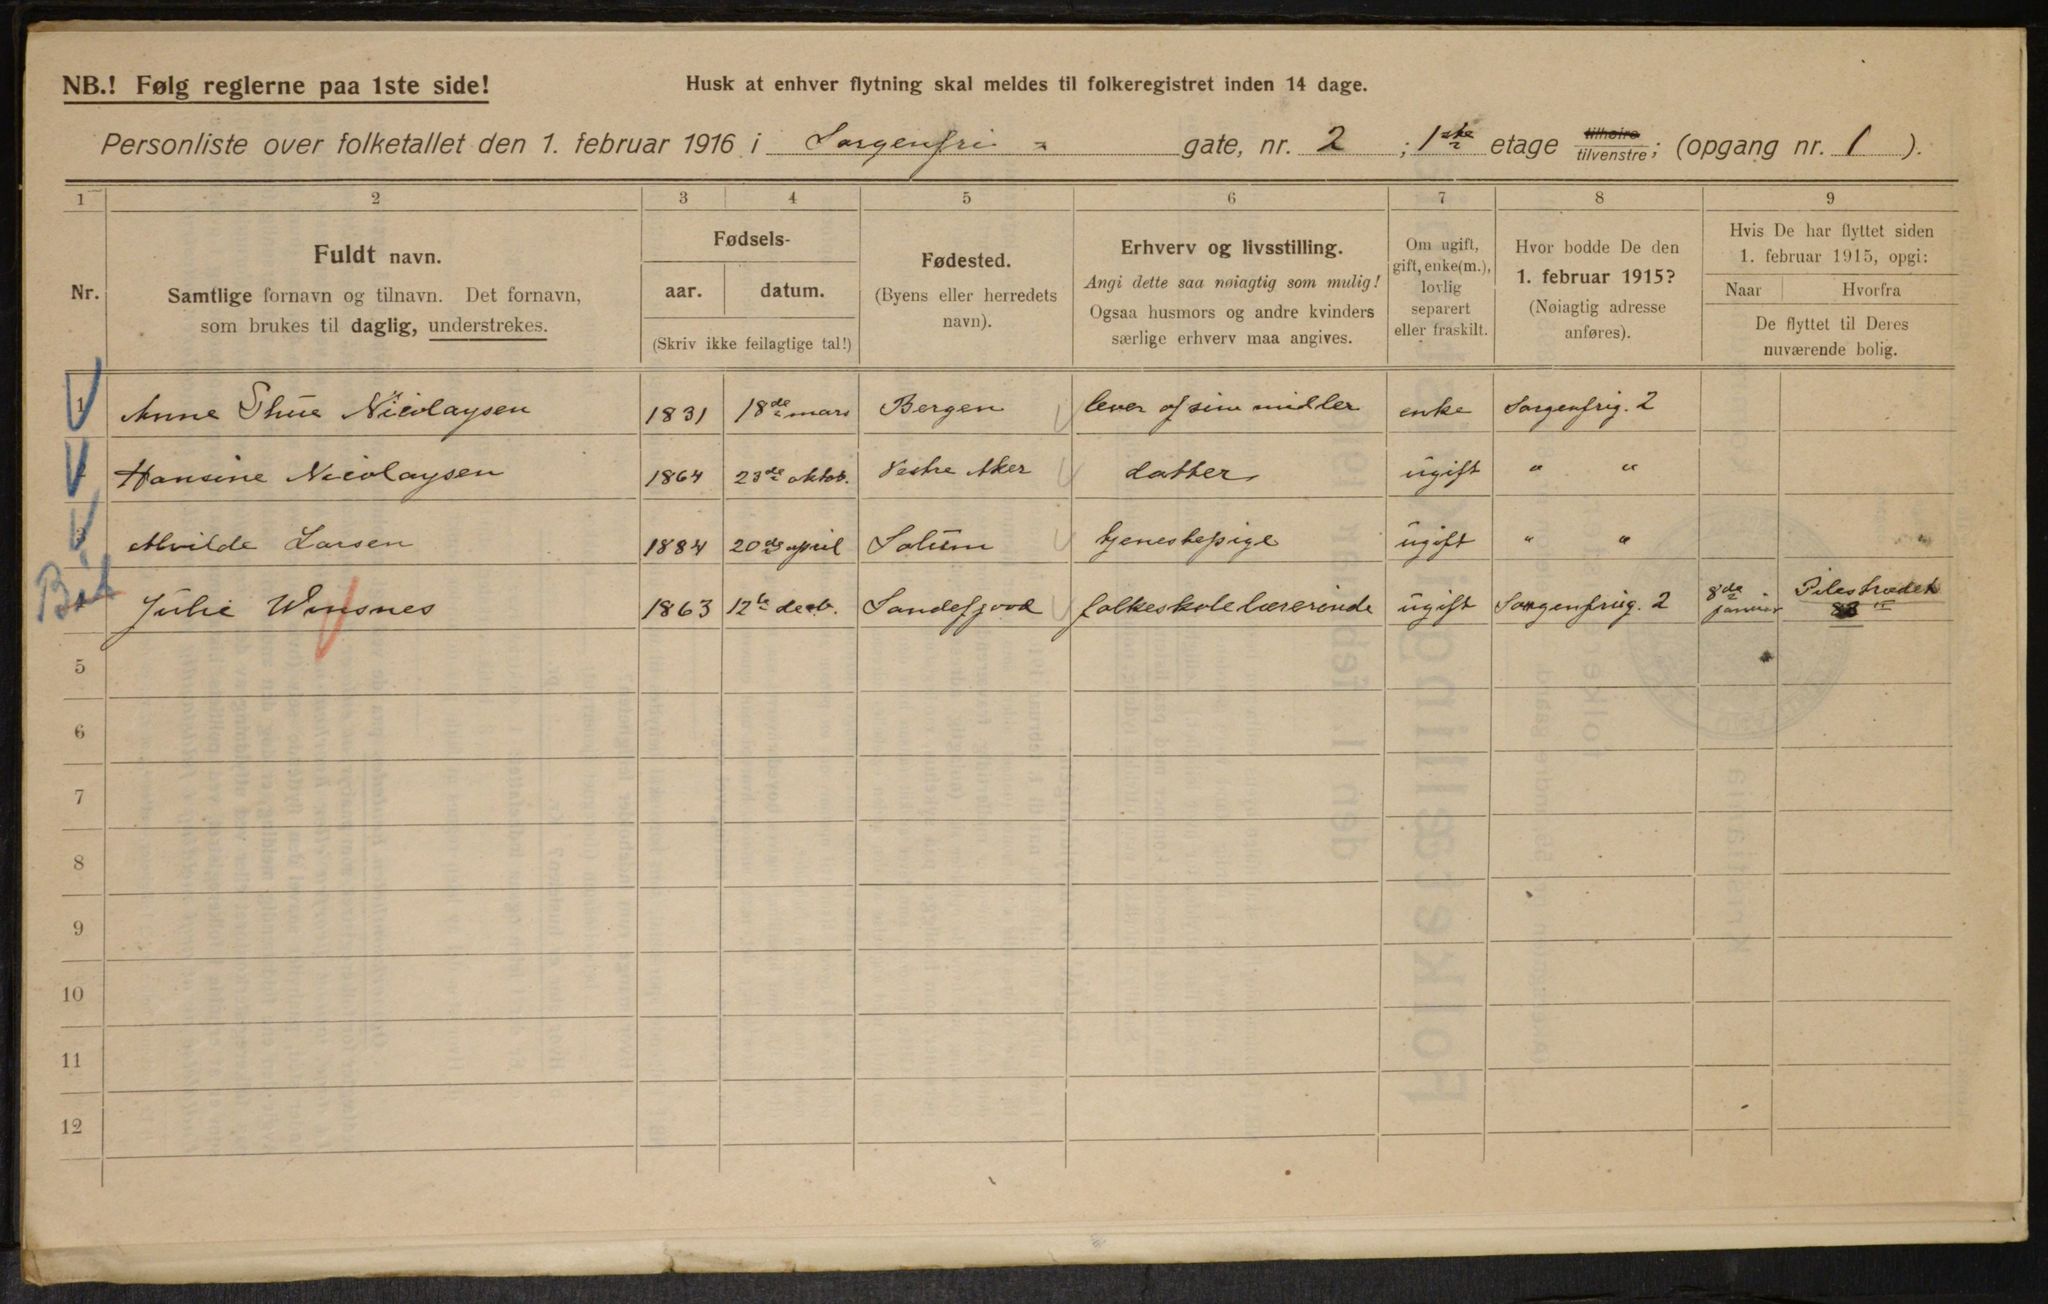 NB.! Følg reglerne paa 1ste side!
Husk at enhver flytning skal meldes til folkeregistret inden 14 dage.
Personliste over folketallet den 1. februar 1916 i Sorgenfri - gate, nr. 2 ; 1ste etage tilhøire tilvenstre; (opgang nr. 1 ).
1 2 3 4 5 6 7 8 9
Nr.
Fuldt navn.
Samtlige fornavn og tilnavn. Det fornavn,
som brukes til daglig, understrekes.
Fødsels-
aar. datum.
(Skriv ikke feilagtige tal!)
Fødested.
(Byens eller herredets
navn).
Erhverv og livsstilling.
Angi dette saa nøiagtig som mulig!
Ogsaa husmors og andre kvinders
særlige erhverv maa angives.
Om ugift,
gift, enke(m.),
lovlig
separert
eller fraskilt.
Hvor bodde De den
1. februar 1915?
(Nøiagtig adresse
anføres).
Hvis De har flyttet siden
1. februar 1915, opgi:
Naar Hvorfra
De flyttet til Deres
nuværende bolig.
1 Anne Thue Nicolaysen 1831 18de mars Bergen lever af sine midler enke Sorgenfrig. 2
2 Hansine Nicolaysen 1864 23de oktob. Vestre Aker datter ugift " "
3 Alvilde Larsen 1884 20de april Solum tjenestepige ugift " "
Julie Winsnes 1863 12te decb. Sandefjord folkeskolelærerinde ugift Sorgenfrig. 2 8de januar Pilestrædet
5
6
7
8
9
10
11
12